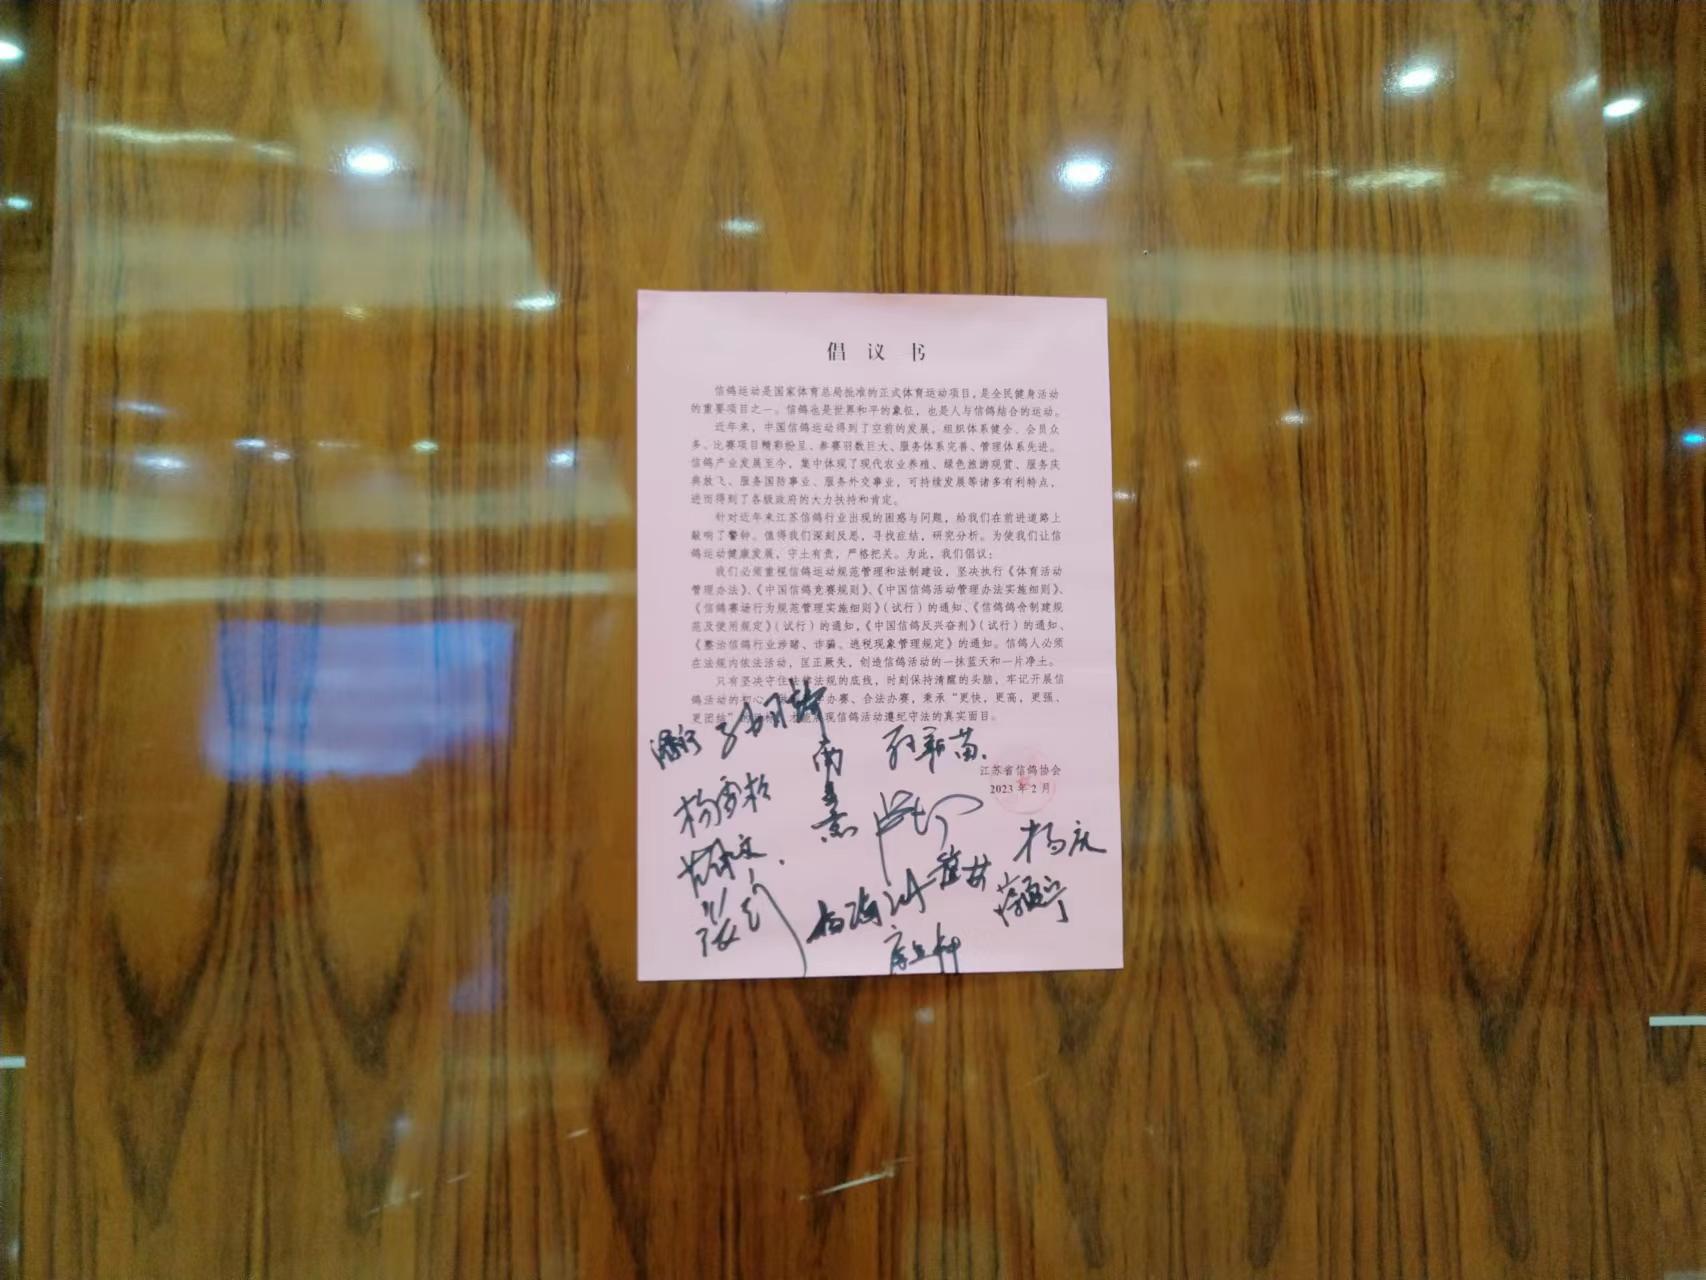 倡议书
信鸽运动是国家体育总局批准的正式体育运动项目，是全民健身活动
的重要项目之一。信鸽也是世界和平的象征，也是人与信鸽结合的运动。
近年来，中国信鸽运动得到了空前的发展，组织体系健全、会员众
多、比赛项目精彩纷呈、参赛羽数巨大、服务体系完善、管理体系先进。
信鸽产业发展至今，集中体现了现代农业养殖、绿色旅游观赏、服务庆
典放飞、服务国防事业、服务外交事业，可持续发展等诸多有利特点，
进而得到了各级政府的大力扶持和肯定。
针对近年来江苏信鸽行业出现的困惑与问题，给我们在前进道路上
敲响了警钟。值得我们深刻反思，寻找症结，研究分析。为使我们让信
鸽运动健康发展，守土有责，严格把关。为此，我们倡议：
我们必须重视信鸽运动规范管理和法制建设，坚决执行《体育活动
管理办法》、《中国信鸽竞赛规则》、《中国信鸽活动管理办法实施细则》、
《信鸽赛场行为规范管理实施细则》（试行）的通知、《信鸽鸽舍制建规
范及使用规定》（试行）的通知，《中国信鸽反兴奋剂》（试行）的通知、
《整治信鸽行业涉赌、诈骗、逃税现象管理规定》的通知。信鸽人必须
在法规内依法活动，匡正厥失，创造信鸽活动的一抹蓝天和一片净土。
只有坚决守住法律法规的底线，时刻保持清醒的头脑，牢记开展信
鸽活动的初心，办赛、合法办赛，秉承“更快，更高，更强、
更团结”的目标，才能展现信鸽活动遵纪守法的真实面目。
江苏省信鸽协会
2023年2月
杨雪松
杨庆